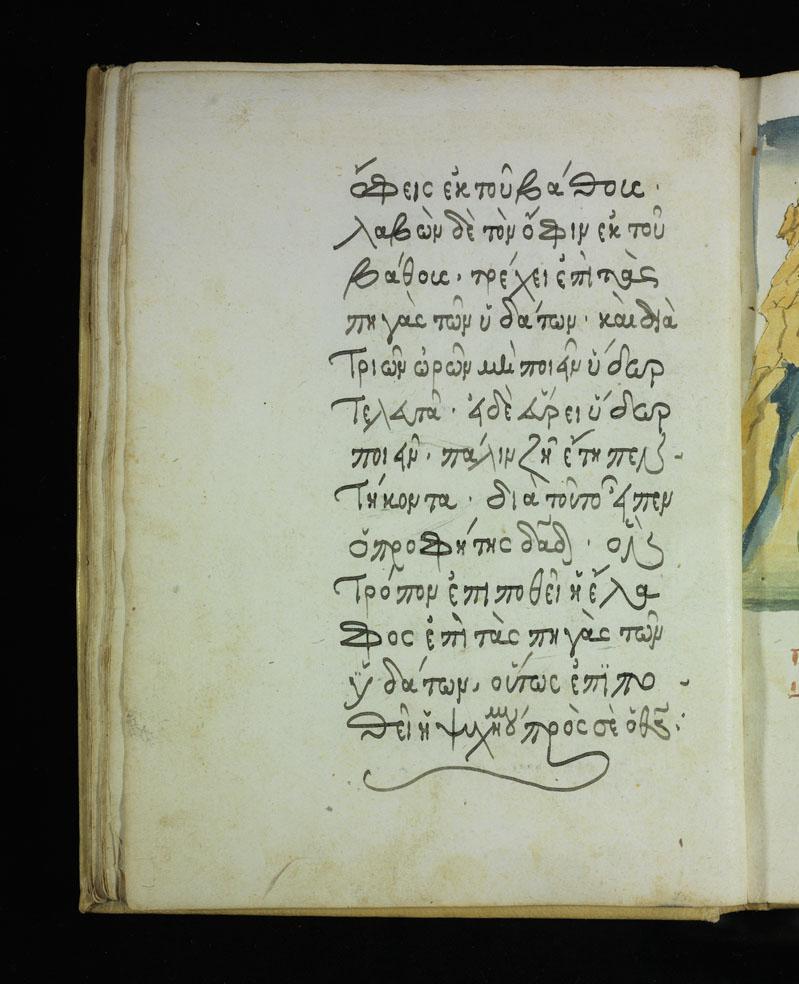 ὄφεις ἐκ τοῦ βάθους ·
λαβὼν δὲ τὸν ὄφιν ἐκ τοῦ
βάθους · τρέχει ἐπὶ τὰς
πηγὰς τῶν ὑδάτων · καὶ διὰ
Τριῶν ὡρῶν μὴ ποιεῖν ὕδωρ
Τελευτᾶ · εἰ δὲ εὕρει ὕδωρ
ποιεῖν · πάλιν ζῆ ἔτη πεν
Τήκοντα · διὰ τοῦτο εἶπεν
ὁ προφήτης δᾱδ · ὃν
Τρόπον ἐπιποθεῖ ἡ ἔλα
φος ἐπὶ τὰς πηγὰς τῶν
ὑδάτων, οὕτως ἐπϊπο
θεῖ ἡ ψυχή μου πρὸς σὲ ὁ θς̄ :